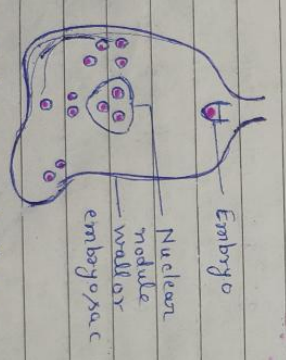 Embryo
Nuclear
nodule
wall of
embryo sac